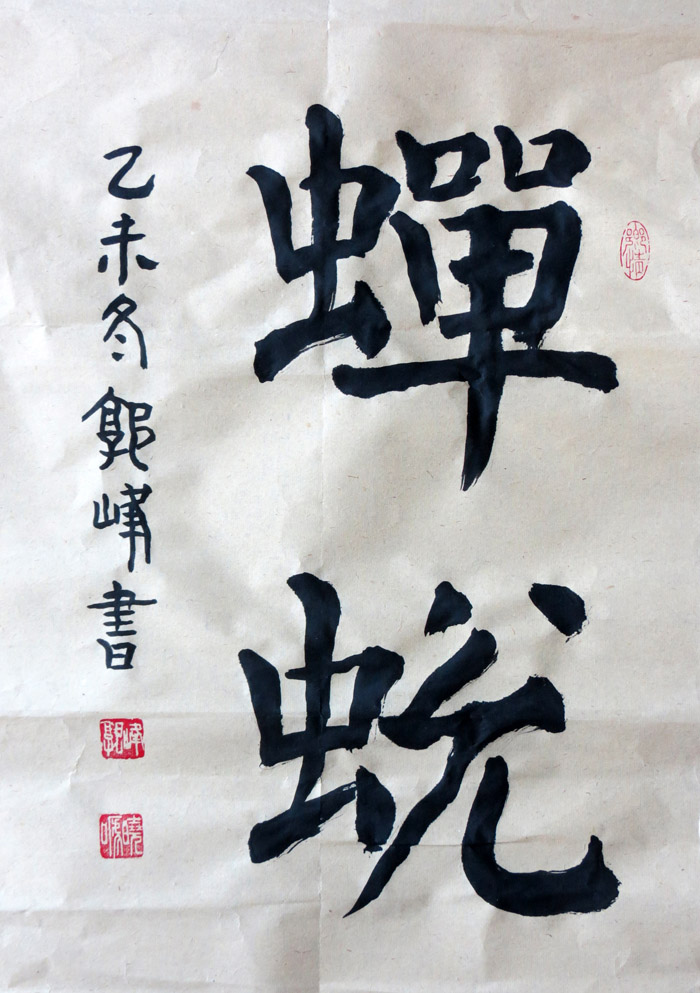 蟬蛻
乙未冬郭峰書